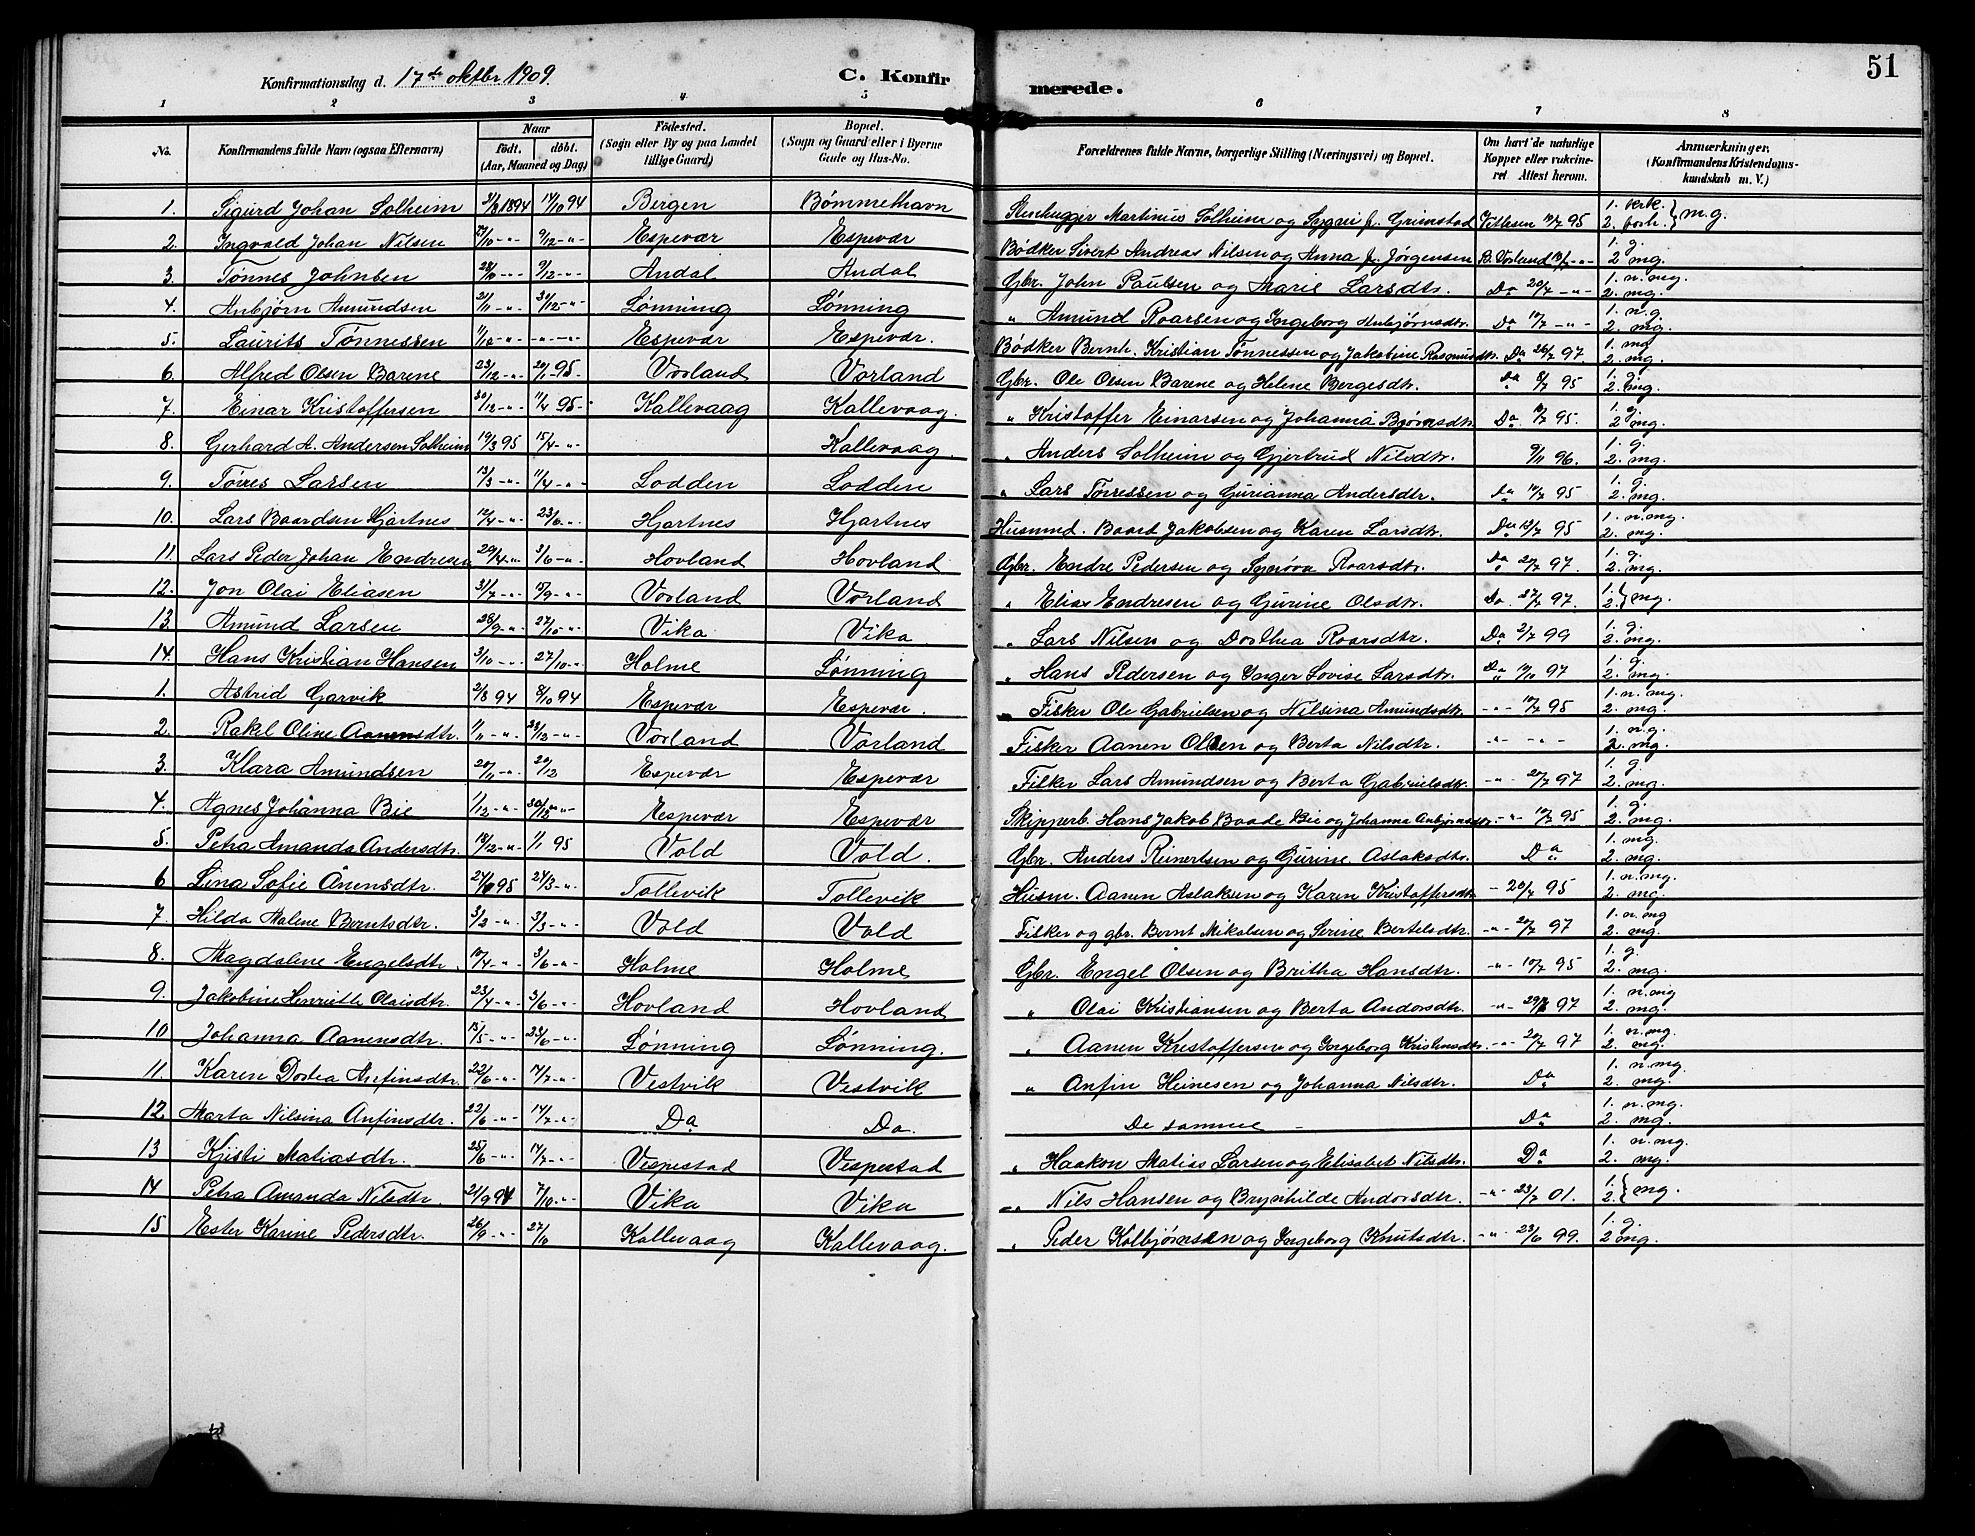 51
Konfirmationsdag d. 17de oktbr 1909.
C. Konfirmerede.
1 2 3 4 5 6 7 8
No. Konfirmandens fulde Navn (ogsaa Efternavn) Naar födt. döbt. (Aar, Maaned og Dag) Födested. (Sogn eller By og paa Landet tillige Gaard) Bopæl. (Sogn og Gaard eller i Byerne Gade og Hus-No. Forældrenes fulde Navne, borgerlige Stilling (Næringsvei) og Bopæl. Om havt de naturlige Kopper eller vakcineret. Attest herom. Anmærkninger, (Konfirmandens Kristendomskundskab m. V.)
1. Sigurd Johan Solheim 1894 14/10 94 Bergen Bømmelhavn Stenhugger Martinius Solheim og f. Grimstad 95 1. krk. 2. forh. } m.g.
2. Ingvald Johan Nilsen 9/12 -"- Espevær Espevær Bødker Sivert Andreas Nilsen og Anna f. Jørgensen B. Vorland 1. g. 2 mg.
3. Tønnes Johnsen 9/12 -"- Andal Andal Gbr. John Paulsen og Marie Larsdtr. Do 20/7 -"- 1. n. mg. 2. mg.
4. Anbjørn Amundsen 30/12 -"- Lønning Lønning " Amund Roarsen og Ingeborg Anbjørnsdtr. Do -"- 1. n. g. 2. mg.
5. Laurits Tønnessen -"- Espevær Espevær. Bødker Bernh. Kristian Tønnessen og Jakobine Rasmusdtr. Do 26/7 97 1. mg 2. mg.
6. Alfred Olsen Barene 23/12 -"- 20/1 95 Vorland Vorland Gbr. Ole Olsen Barene og Helene Bergesdtr. Do 8/7 95 1. g. 2. mg.
7. Einar Kristoffersen 30/12 -"- 11/4 95 Kallevaag Kallevaag. " Kristoffer Einarsen og Johanna Bjørnsdtr. Do 95. 1. g. 2 mg.
8. Gerhard A. Andersen Solheim 19/3 95 15/4 -"- Kallevaag. " Anders Solheim og Gjertrud Nilsdtr. 9/11 96. 1. g. 2. mg.
9. Tørres Larsen 13/3 -"- 11/4 -"- Lodden Lodden " Lars Tørressen og Gurianna Andersdtr. Do 95 1. g. 2. mg.
10. Lars Baardsen Hjartnes 12/4 -"- 23/6 -"- Hjartnes Hjartnes Husmd. Baard Jakobsen og Karen Larsdtr. Do 95 1. n. mg. 2. mg.
11. Lars Peder Johan Endresen 29/4 -"- 3/6 -"- Hovland Hovland Gbr. Endre Pedersen og Synøva Roarsdtr. Do 27/7 97. 1. g. 2. mg.
12. Jon Olai Eliasen 31/7 -"- 15/9 -"- Vorland Vorland " Elias Endresen og Gurine Olsdtr. Do. 27/7 97. 1. 2. } mg.
13. Amund Larsen 28/9 -"- 27/10 -"- Vika Vika " Lars Nilsen og Dorthea Roarsdtr. Do 2/7 99 1. g. 2. mg.
14. Hans Kristian Hansen 3/10 -"- 27/10 -"- Holme Lønning " Hans Pedersen og Inger Lovise Larsdtr. Do 97 1. g. 2. mg.
1. Astrid Garvik 2/8 94 8/10 94 Espevær Espevær. Fisker Ole Gabrielsen og Nilsina Amundsdtr. -"- 95 1. n. mg. 2. mg.
2. Rakel Oline Aanensdtr. 1/11 -"- 23/12 -"- Vorland Vorland Fisker Aanen Olsen og Berta Nilsdtr. -"- -"- 1. n. g. 2. mg.
3. Klara Amundsen 20/11 -"- 29/12 Espevær Espevær Fisker Lars Amundsen og Berta Gabrielsdtr. -"- 20/7 97 1. g. 2. mg.
4. Agnes Johanna Bie 1/12 -"- 30/12 -"- Espevær Espevær Skipperb. Hans Jakob Baade Bie og Johanna Anbjørnsdtr. -"- 10/7 95 1. g. 2. mg.
5. Petra Amanda Andersdtr. 18/12 -"- 1/1 95 Vold Vold. Gbr. Anders Reinertsen og Gurine Aslaksdtr. Do 1. mg. 2. mg.
6 Lina Sofie Ånensdtr. 95 24/3 -"- Tollevik Tollevik Husm. Aanen Aslaksen og Karen Kristoffersdtr. - 20/7 95 1. n. mg. 2. mg.
7. Hilda Malene Berntsdtr. 3/2 -"- 3/3 -"- Vold Vold Fisker og gbr. Bernt Mikalsen og Serine Bertelsdtr. -"- 20/7 97 1. n. mg 2. mg.
8. Magdalene Engelsdtr. 17/4 -"- 3/6 -"- Holme Holme Gbr. Engel Olsen og Britha Hansdtr. -"- 10/7 95 1. g. 2. mg.
9. Jakobine Henriette Olaisdtr. 23/4 -"- 3/6 -"- Hovland Hovland " Olai Kristiansen og Berta Andorsdtr. -"- 29/7 97 1. n. mg 2. mg.
10. Johanna Aanensdtr. 15/5 -"- 23/6 -"- Lønning Lønning. " Aanen Kristoffersen og Ingeborg Kristensdtr. -"- 20/7 97 1. n. mg. 2. mg.
11. Karen Dortea Anfinsdtr. 22/6 -"- 14/7 -"- Vestvik Vestvik " Anfin Heinesen og Johanna Nilsdtr. Do 1. n. mg. 2. mg.
12. Marta Nilsina Anfinsdtr. 22/6 -"- 14/7 -"- Do Do. De samme - Do 1. n. mg. 2. mg.
13 Kjisti Matiasdtr. 25/6 -"- 14/7 -"- Vespestad Vespestad " Haakon Matias Larsen og Elisabet Nilsdtr. Do 1. n. mg. 2. mg.
14 Petra Amanda Nilsdtr. 21/9 94 7/10 -"- Vika Vika " Nils Hansen og Brynhilde Andorsdtr. -"- 23/7 01. 1. 2. } mg.
15 Ester Karine Pedersdtr. 26/9 -"- Kallevaag Kallevaag. " Peder Kolbjørnsen og Ingeborg Knutsdtr. -"- 99. 1. g. 2 mg.